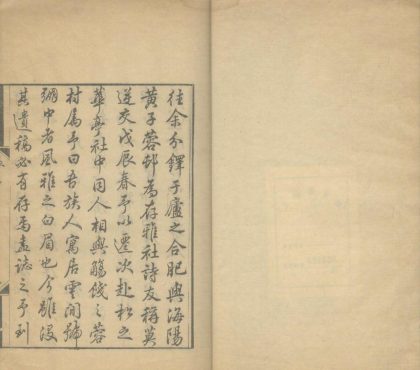 往余分鐸于廬之合肥與海陽
黃子蓉邨為存雅社詩友稱莫
逆交戊辰春予以遷次赴松之
華亭社中同人相與觴餞之蓉
村屬予曰吾族人寓居雲間號
綳中者風雅之白眉也今雖沒
其遺稿必有存焉盍誌之予到